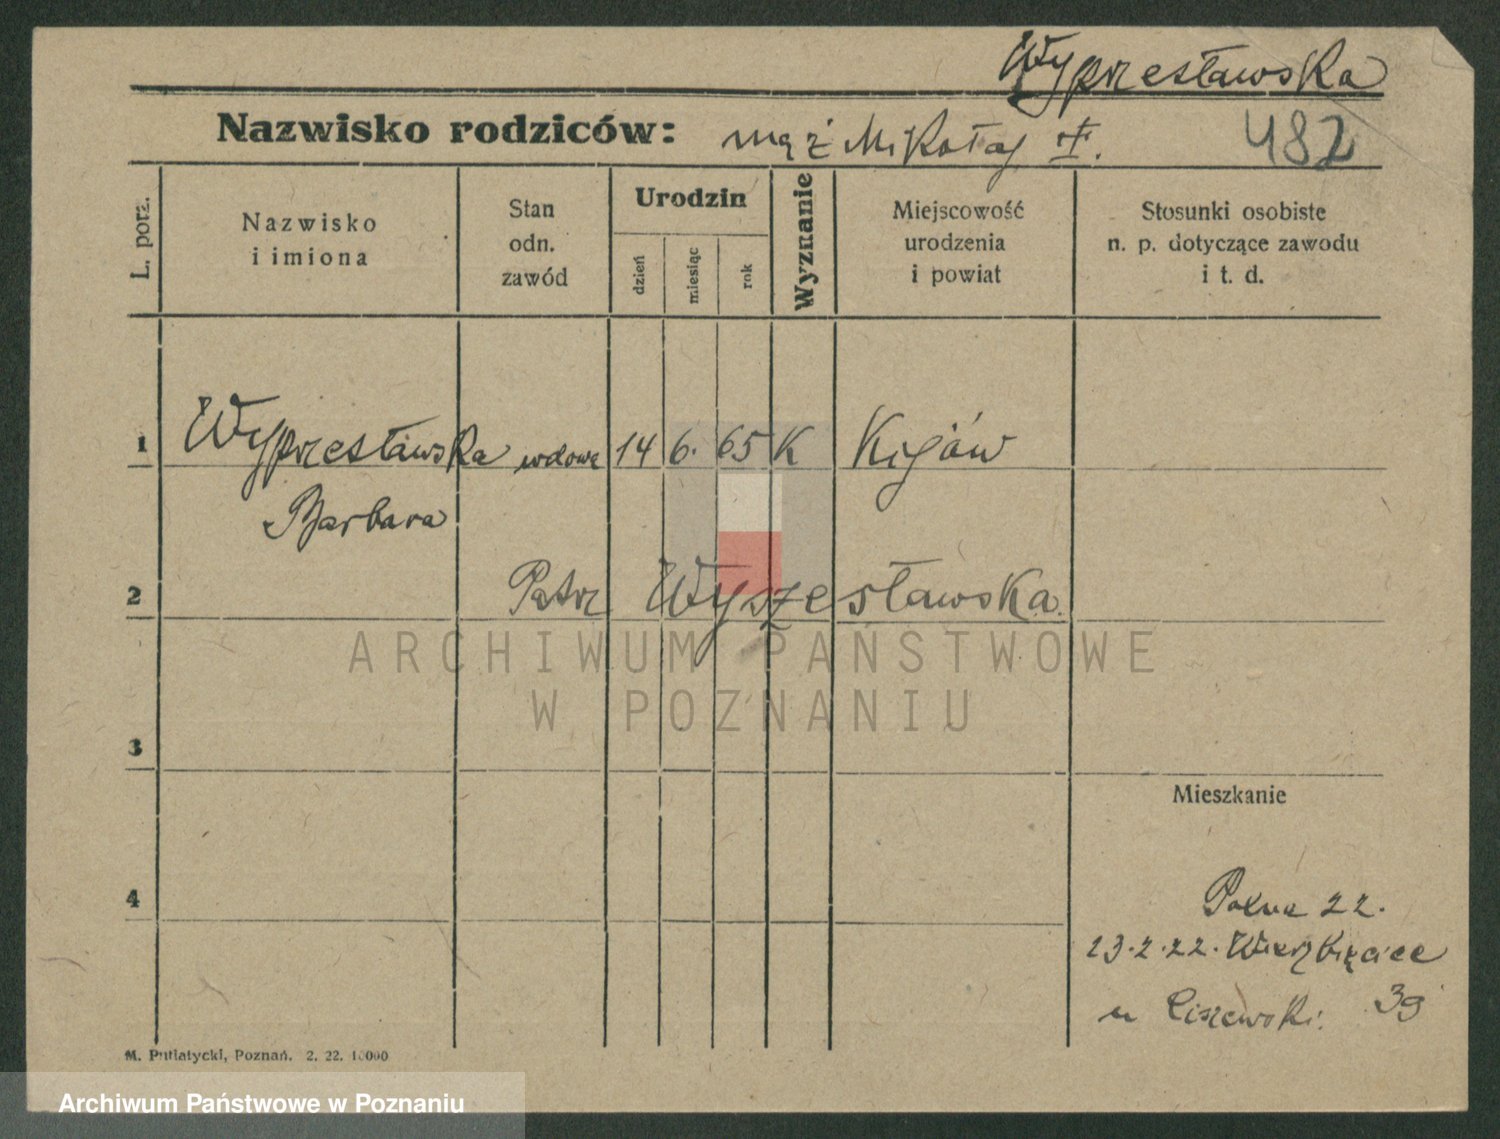 Wyprzesławska
Nazwisko rodziców: mąż Mikołaj †. 482
L. porz.
Nazwisko
i imiona
Stan
odn.
zawód
Urodzin
dzień
miesiąc
rok
Wyznanie
Miejscowość
urodzenia
i powiat
Stosunki osobiste
n. p. dotyczące zawodu
i t. d.
1 Wyprzesławska wdowa 14 6. 65 K Kijów
Barbara
2 Patrz Wyszesławska.
ARCHIWUM PAŃSTWOWE
W POZNANIU
3
Mieszkanie
4
Polna 22.
23.2.22. Wierzbięcice
39
u Ciszewski.
M. Putiatycki, Poznań. 2. 22. 10000
Archiwum Państwowe w Poznaniu